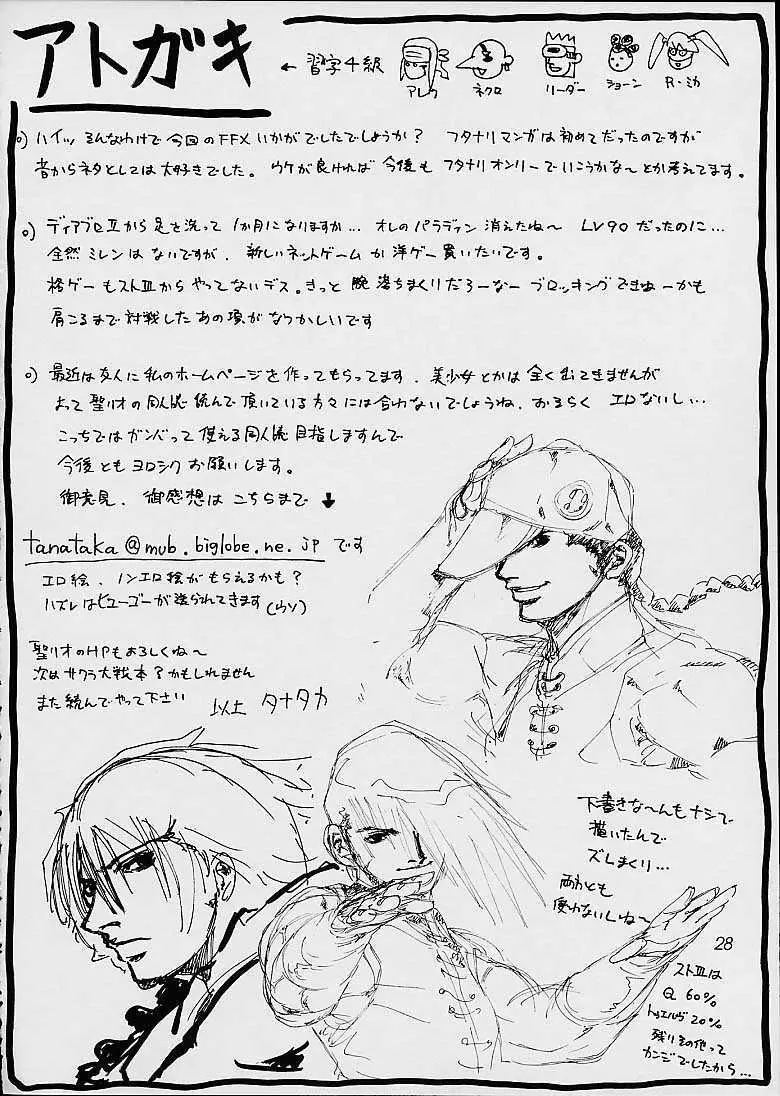 アトガキ
← 習字4級
アレク
ネクロ
リーダー
ショーン
R・ミカ
o) ハイッ そんなわけで今回のFFXいかがでしたでしょうか? フタナリマンガは初めてだったのですが
昔からネタとしては大好きでした。 ウケが良ければ 今後も フタナリオンリーでいこうかな〜とか考えてます。
o) ディアブロⅡから足を洗って 1か月になりますか… オレのパラディン 消えたね〜 LV90だったのに…
全然ミレンはないですが、新しいネットゲームか洋ゲー買いたいです。
格ゲーもストⅢからやってないデス。きっと 腕落ちまくりだろーなー ブロッキングできねーかも
肩こるまで対戦したあの頃がなつかしいです
o) 最近は友人に私のホームページを作ってもらってます、美少女とかは全く出てきませんが
よって聖リオの同人誌読んで頂いている方々には合わないでしょうね、おそらく エロないし…
こっちではガンバって使える同人誌目指しますんで
今後ともヨロシクお願いします。
御意見、御感想はこちらまで ↓
tanataka@mub.biglobe.ne.jp です
エロ絵、ノンエロ絵がもらえるかも?
ハズレはヒューゴーが送られてきます(ウソ)
聖リオのHPもよろしくね〜
次はサクラ大戦本?かもしれません
また読んでやって下さい
以上 タナタカ
下書きな〜んもナシで
描いたんで
ズレまくり…
両わとも
使わないしね〜
28
ストⅢは
Q 60%
トゥエルヴ 20%
残りその他って
カンジでしたから…